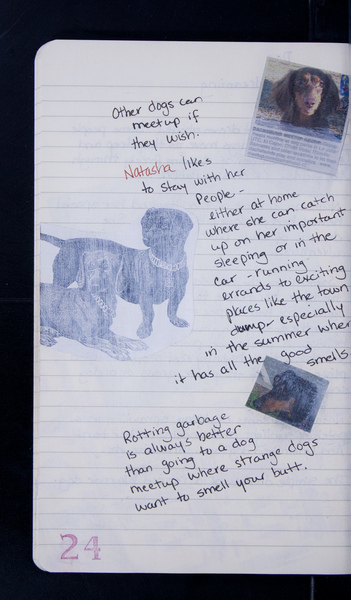 Other dogs can
meetup if
they wish.
Natasha likes
to stay with her
People -
either at home
where she can catch
up on her important
sleeping or in the
car - running
errands to exciting
places like the town
dump - especially
in the summer when
it has all the good
smells.
Rotting garbage
is always better
than going to a dog
meetup where strange dogs
want to smell your butt.
24